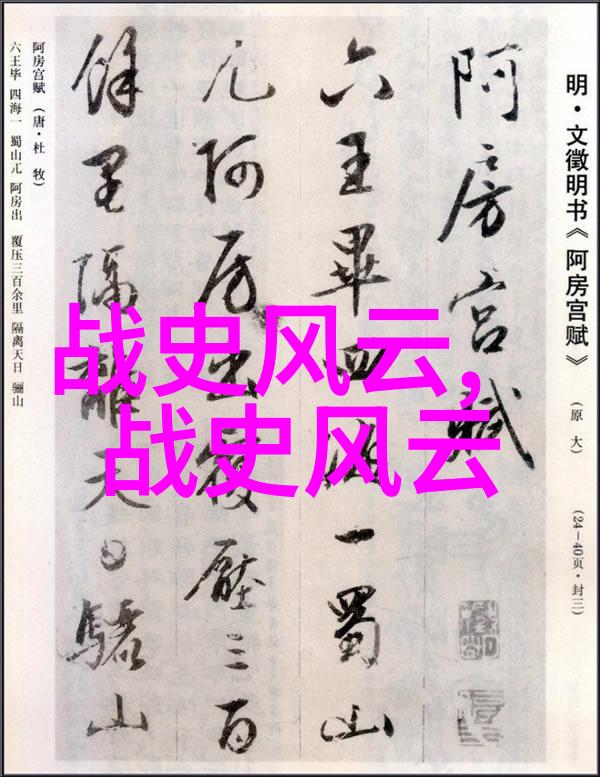 明·文徵明书《阿房宫赋》 (原大) (24—40页·封三)
阿房宫赋
六王畢四海一蜀山
兀阿房出覆壓三百
餘里隔離天日驪山
阿房宫赋 (唐·杜牧)
六王毕 四海一 蜀山兀 阿房出 覆压三百余里 隔离天日 骊山
战史风云,
战史风云